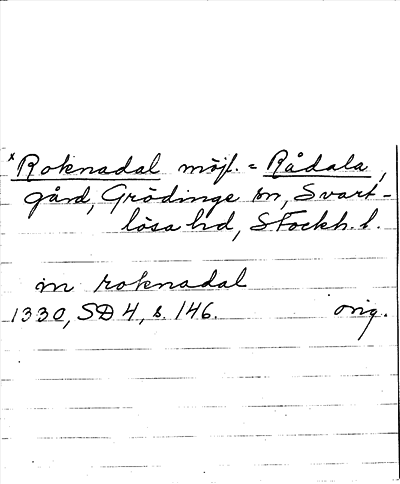 x Roknadal möjl. = Rådala,
gård, Grödinge sn, Svart-
lösa hd, Stockh. l.
in roknadal
1330, SD 4, s. 146. orig.